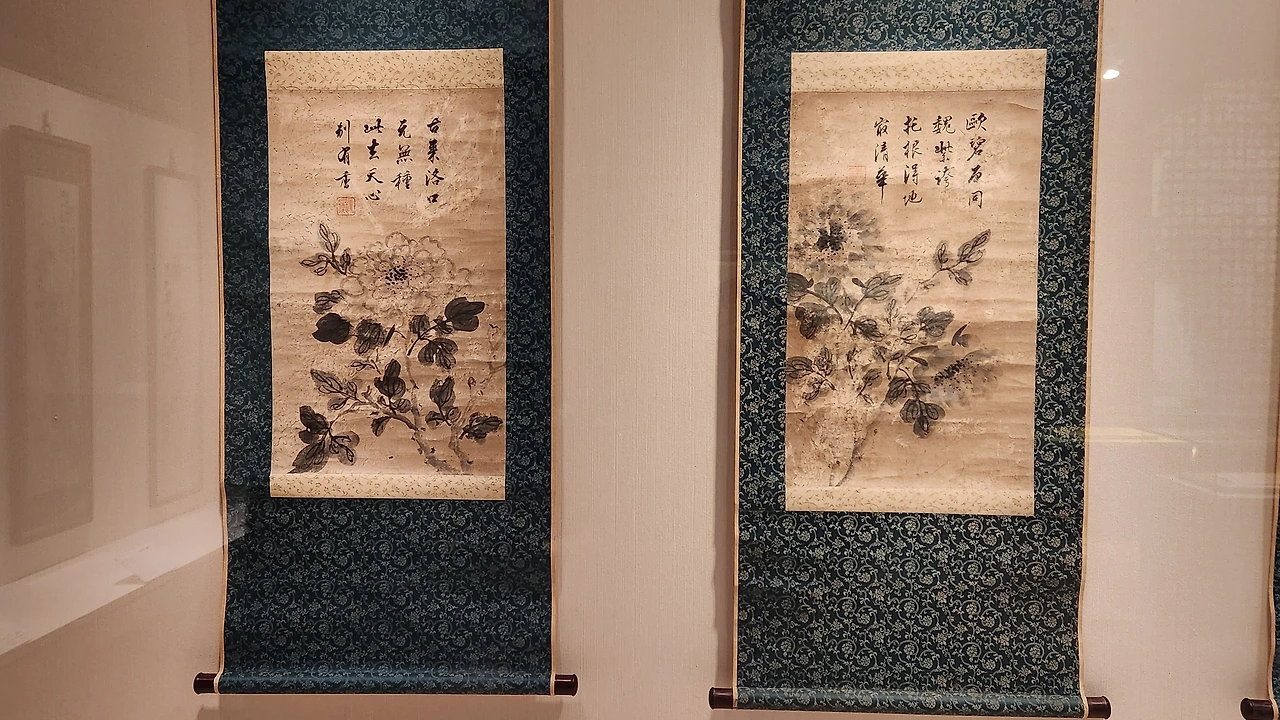 歐碧同
魏紫誇
托根得地
㝡清華
古來洛口
元無種
此去天心
別有香